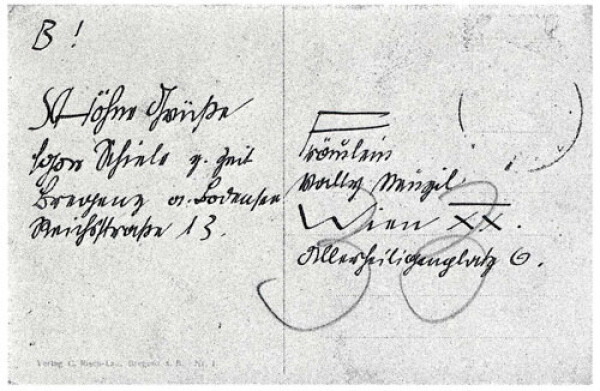 B!
Schöne Grüße
Egon Schiele z. Zeit
Bregenz a. Bodensee
Reichsstraße 13.
Fräulein
Vally Neuzil
Wien XX.
Allerheiligenplatz 6.
38
Verlag C. Risch-Lau, Bregenz a. B. - Nr. 1